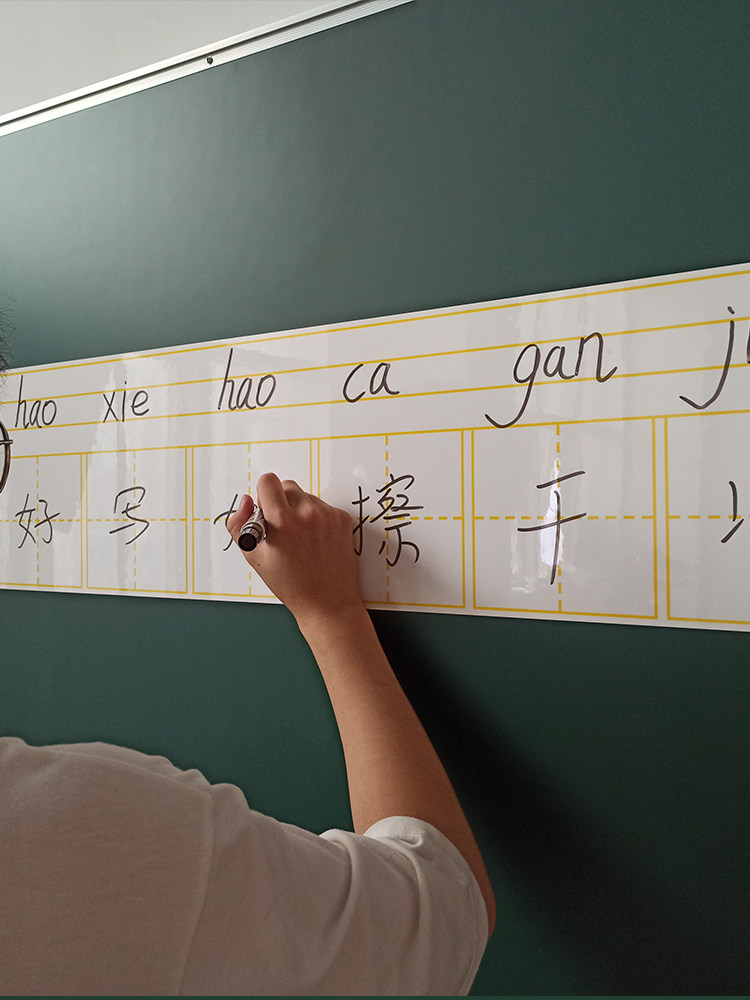 hao xie hao ca gan
好 写 擦 干